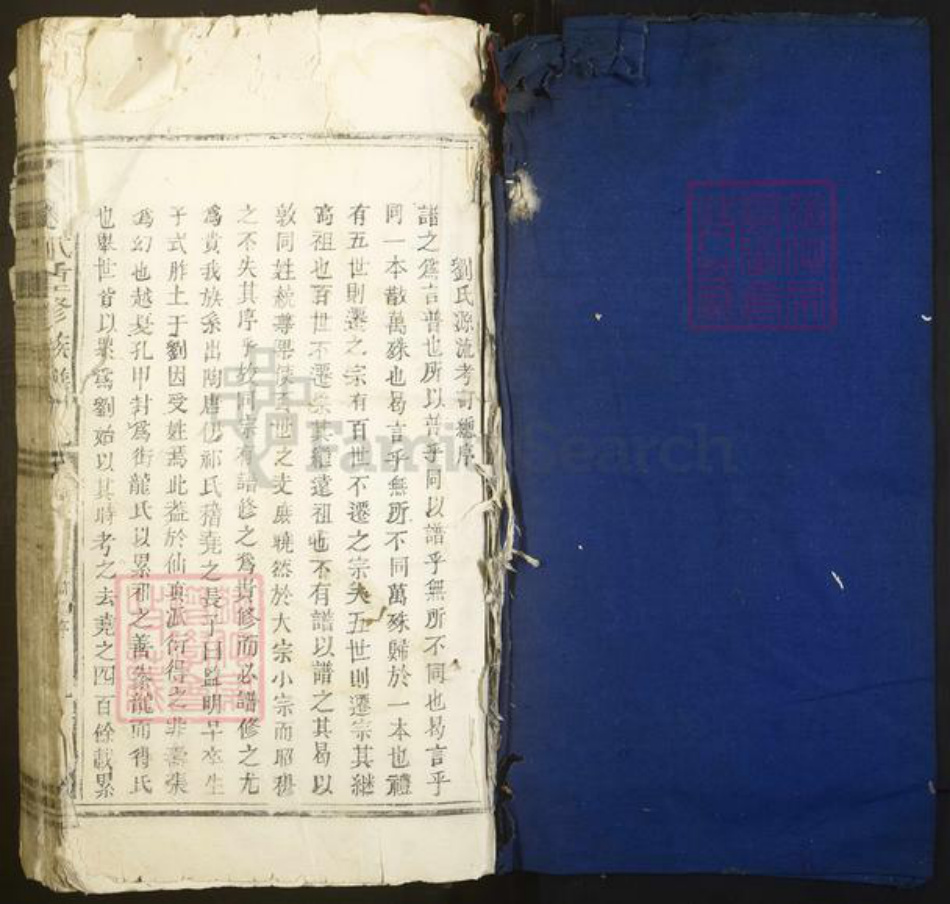 劉氏源流考訂總序
譜之爲言普也所以普乎同以譜乎無所不同也曷言乎
同一本散萬殊也曷言乎無所不同萬殊歸於一本也禮
有五世則遷之宗有百世不遷之宗夫五世則遷宗其繼
高祖也百世不遷宗其繼遠祖也不有譜以譜之其曷以
敦同姓統尊卑使百世之支庶曉然於大宗小宗而昭穆
之不失其序乎故同宗有譜修之爲貴修而必譜修之尤
爲貴我族系出陶唐伊祁氏稽堯之長子曰監明早卒生
子式胙土于劉因受姓焉此蓋於仙源派衍得之非譸張
爲幻也越夏孔甲封爲御龍氏以累祖之善豢龍而得氏
也舉世皆以累爲劉始以其時考之去堯之四百餘載累
氏重修族譜
FamilySearch